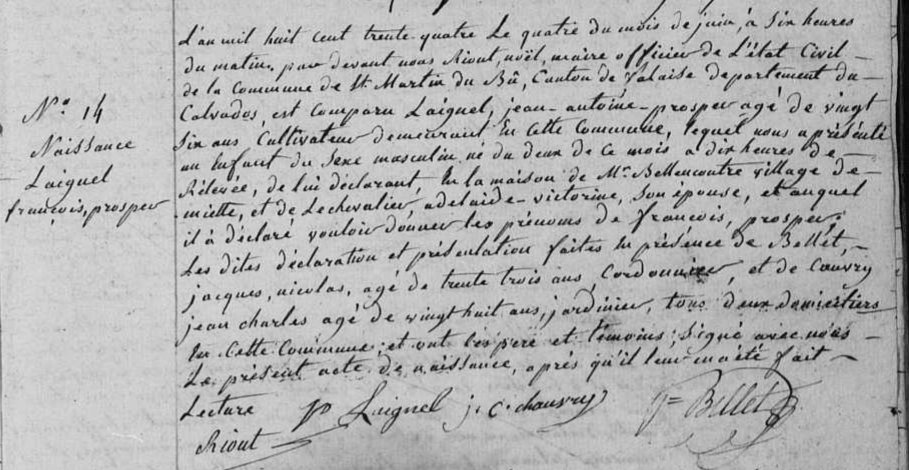 N.º 14
Naissance
Laignel
françois, prosper
L'an mil huit cent trente quatre Le quatre du mois de juin, à Six heures
du matin, par devant nous Riout, noël, maire officier de L'état Civil
de la Commune de St. Martin du Bû, Canton de falaise departement du
Calvados, est comparu Laignel, jean-antoine-prosper agé de vingt
Six ans Cultivateur demeurant En Cette Commune, lequel nous a présenté
un Enfant du Sexe masculin né du deux de ce mois a dix heures de
Rélevée, de lui déclarant, En la maison de Mr. Bellencontre village de
miette, et de Lechevalier, adelaide-victorine, Son épouse, et auquel
il à déclaré vouloir donner les prénoms de françois, prosper;
Les dites déclaration et présentation faites En présence de Bellét,
jacques, nicolas, agé de trente trois ans, Cordonnier, et de Cauvry
jean charles agé de vingt huit ans, jardinier, tous deux domiciliers
En Cette Commune; et ont Les père et témoins Signé avec nous
Le présent acte de naissance, après qu'il leur en a été fait
Lecture
Laignel j. C. chauvry
Bellét
Riout